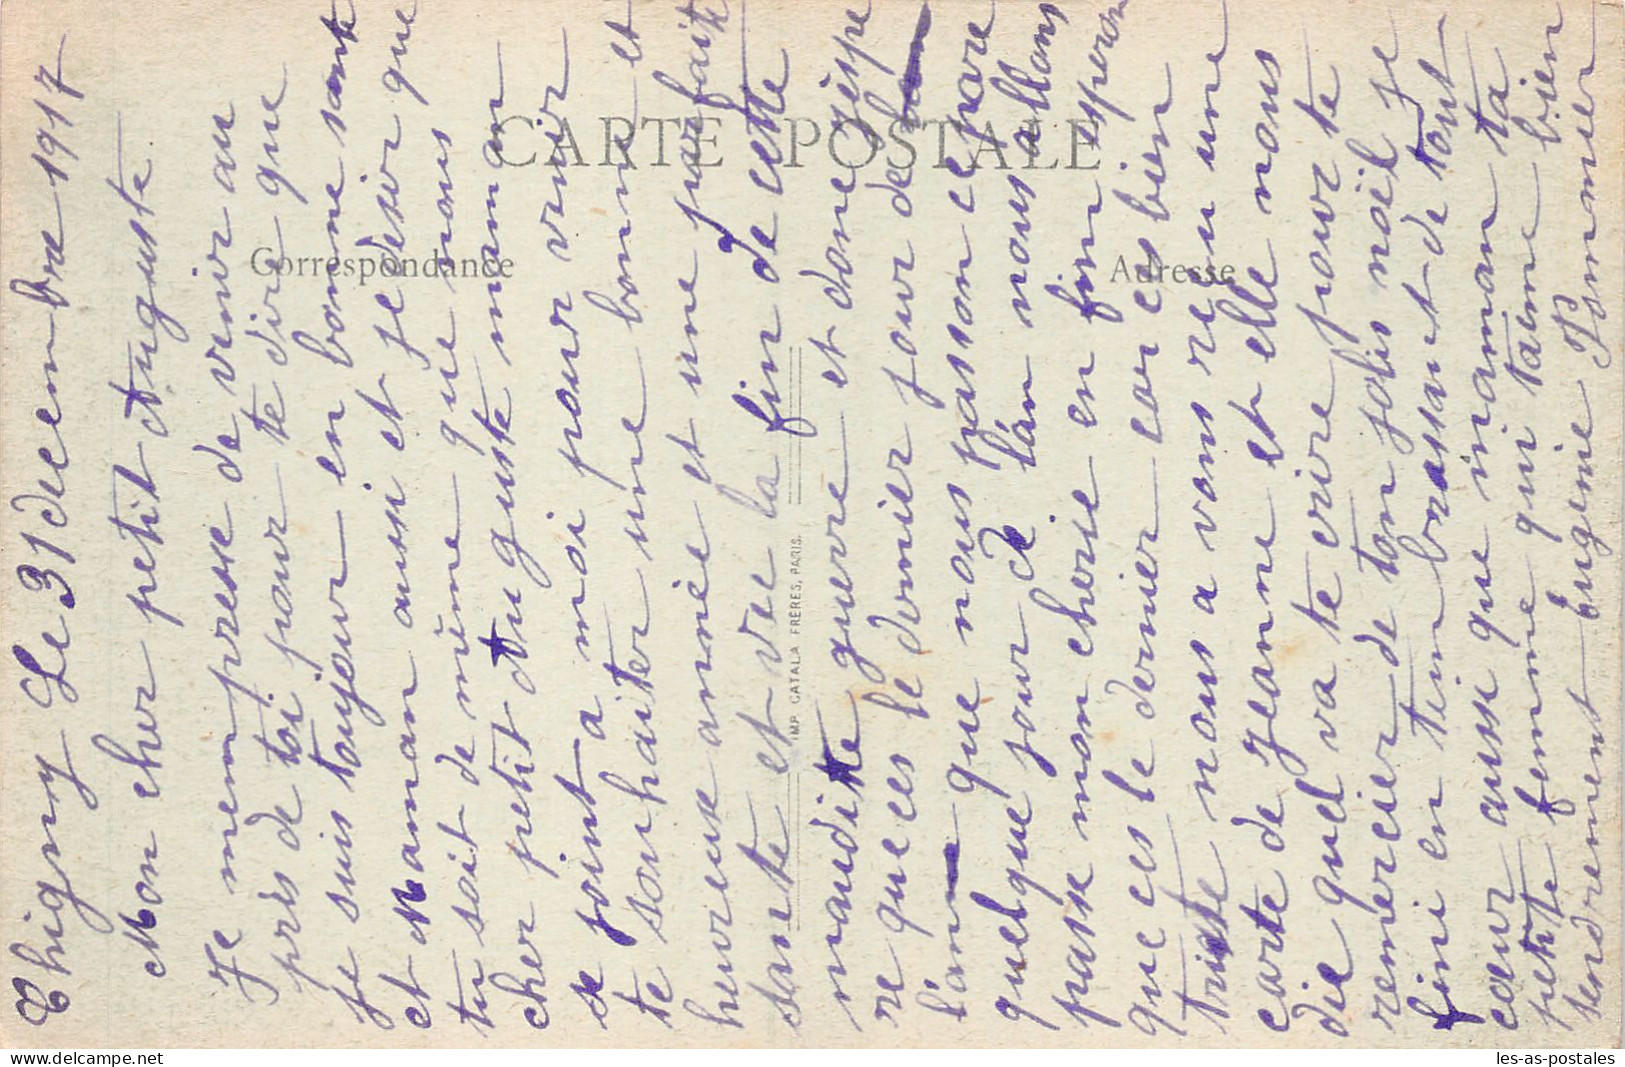 Chigny Le 31 decembre 1917
Mon cher petit Auguste
Je menpresse de venir au
près de toi pour te dire que
je suis toujour en bonne sante
et Maman aussi et je desir que
tu soit de même que nous
cher petit Auguste maman
se joint a moi pour venir
te souhaiter une bonne et
heureuse année et une parfaite
sante et vee la fin de cette
maudite guerre et donc gespe
re que ces le dernier jour de
l'ann que nous passon enpare
quelque jour de l'an nous allons
passe mon cherie en fin esperon
que ces le dernier car es bien
triste nous a vons re cu une
carte de Jeanne et elle nous
die quel va te crire pour te
remercier de ton jolis noël Je
fini en tem brassant de tout
cœur aussi que maman ta
petite femme qui taime bien
tendrement Eugenie Pommier
CARTE POSTALE
Correspondance
Adresse
IMP. CATALA FRERES, PARIS.
delcampe.net
les-as-postales